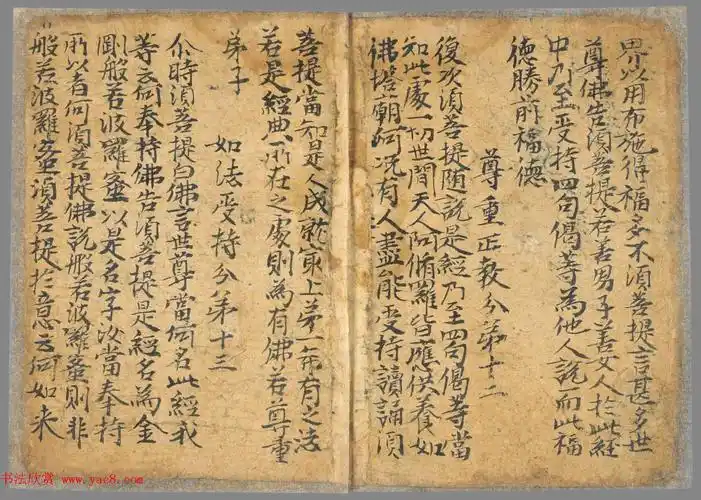 界以用布施得福多不須菩提言甚多世
尊佛告須菩提若善男子善女人於此經
中乃至受持四句偈等為他人說而此福
德勝前福德
尊重正教分第十二
復次須菩提隨說是經乃至四句偈等當
知此處一切世間天人阿脩羅皆應供養如
佛塔廟何況有人盡能受持讀誦須
菩提當知是人成就最上第一希有之法
若是經典所在之處則為有佛若尊重
弟子
如法受持分第十三
尒時須菩提白佛言世尊當何名此經我
等云何奉持佛告須菩提是經名為金
剛般若波羅蜜以是名字汝當奉持
所以者何須菩提佛說般若波羅蜜則非
般若波羅蜜須菩提於意云何如來
书法欣赏 www.yac8.com